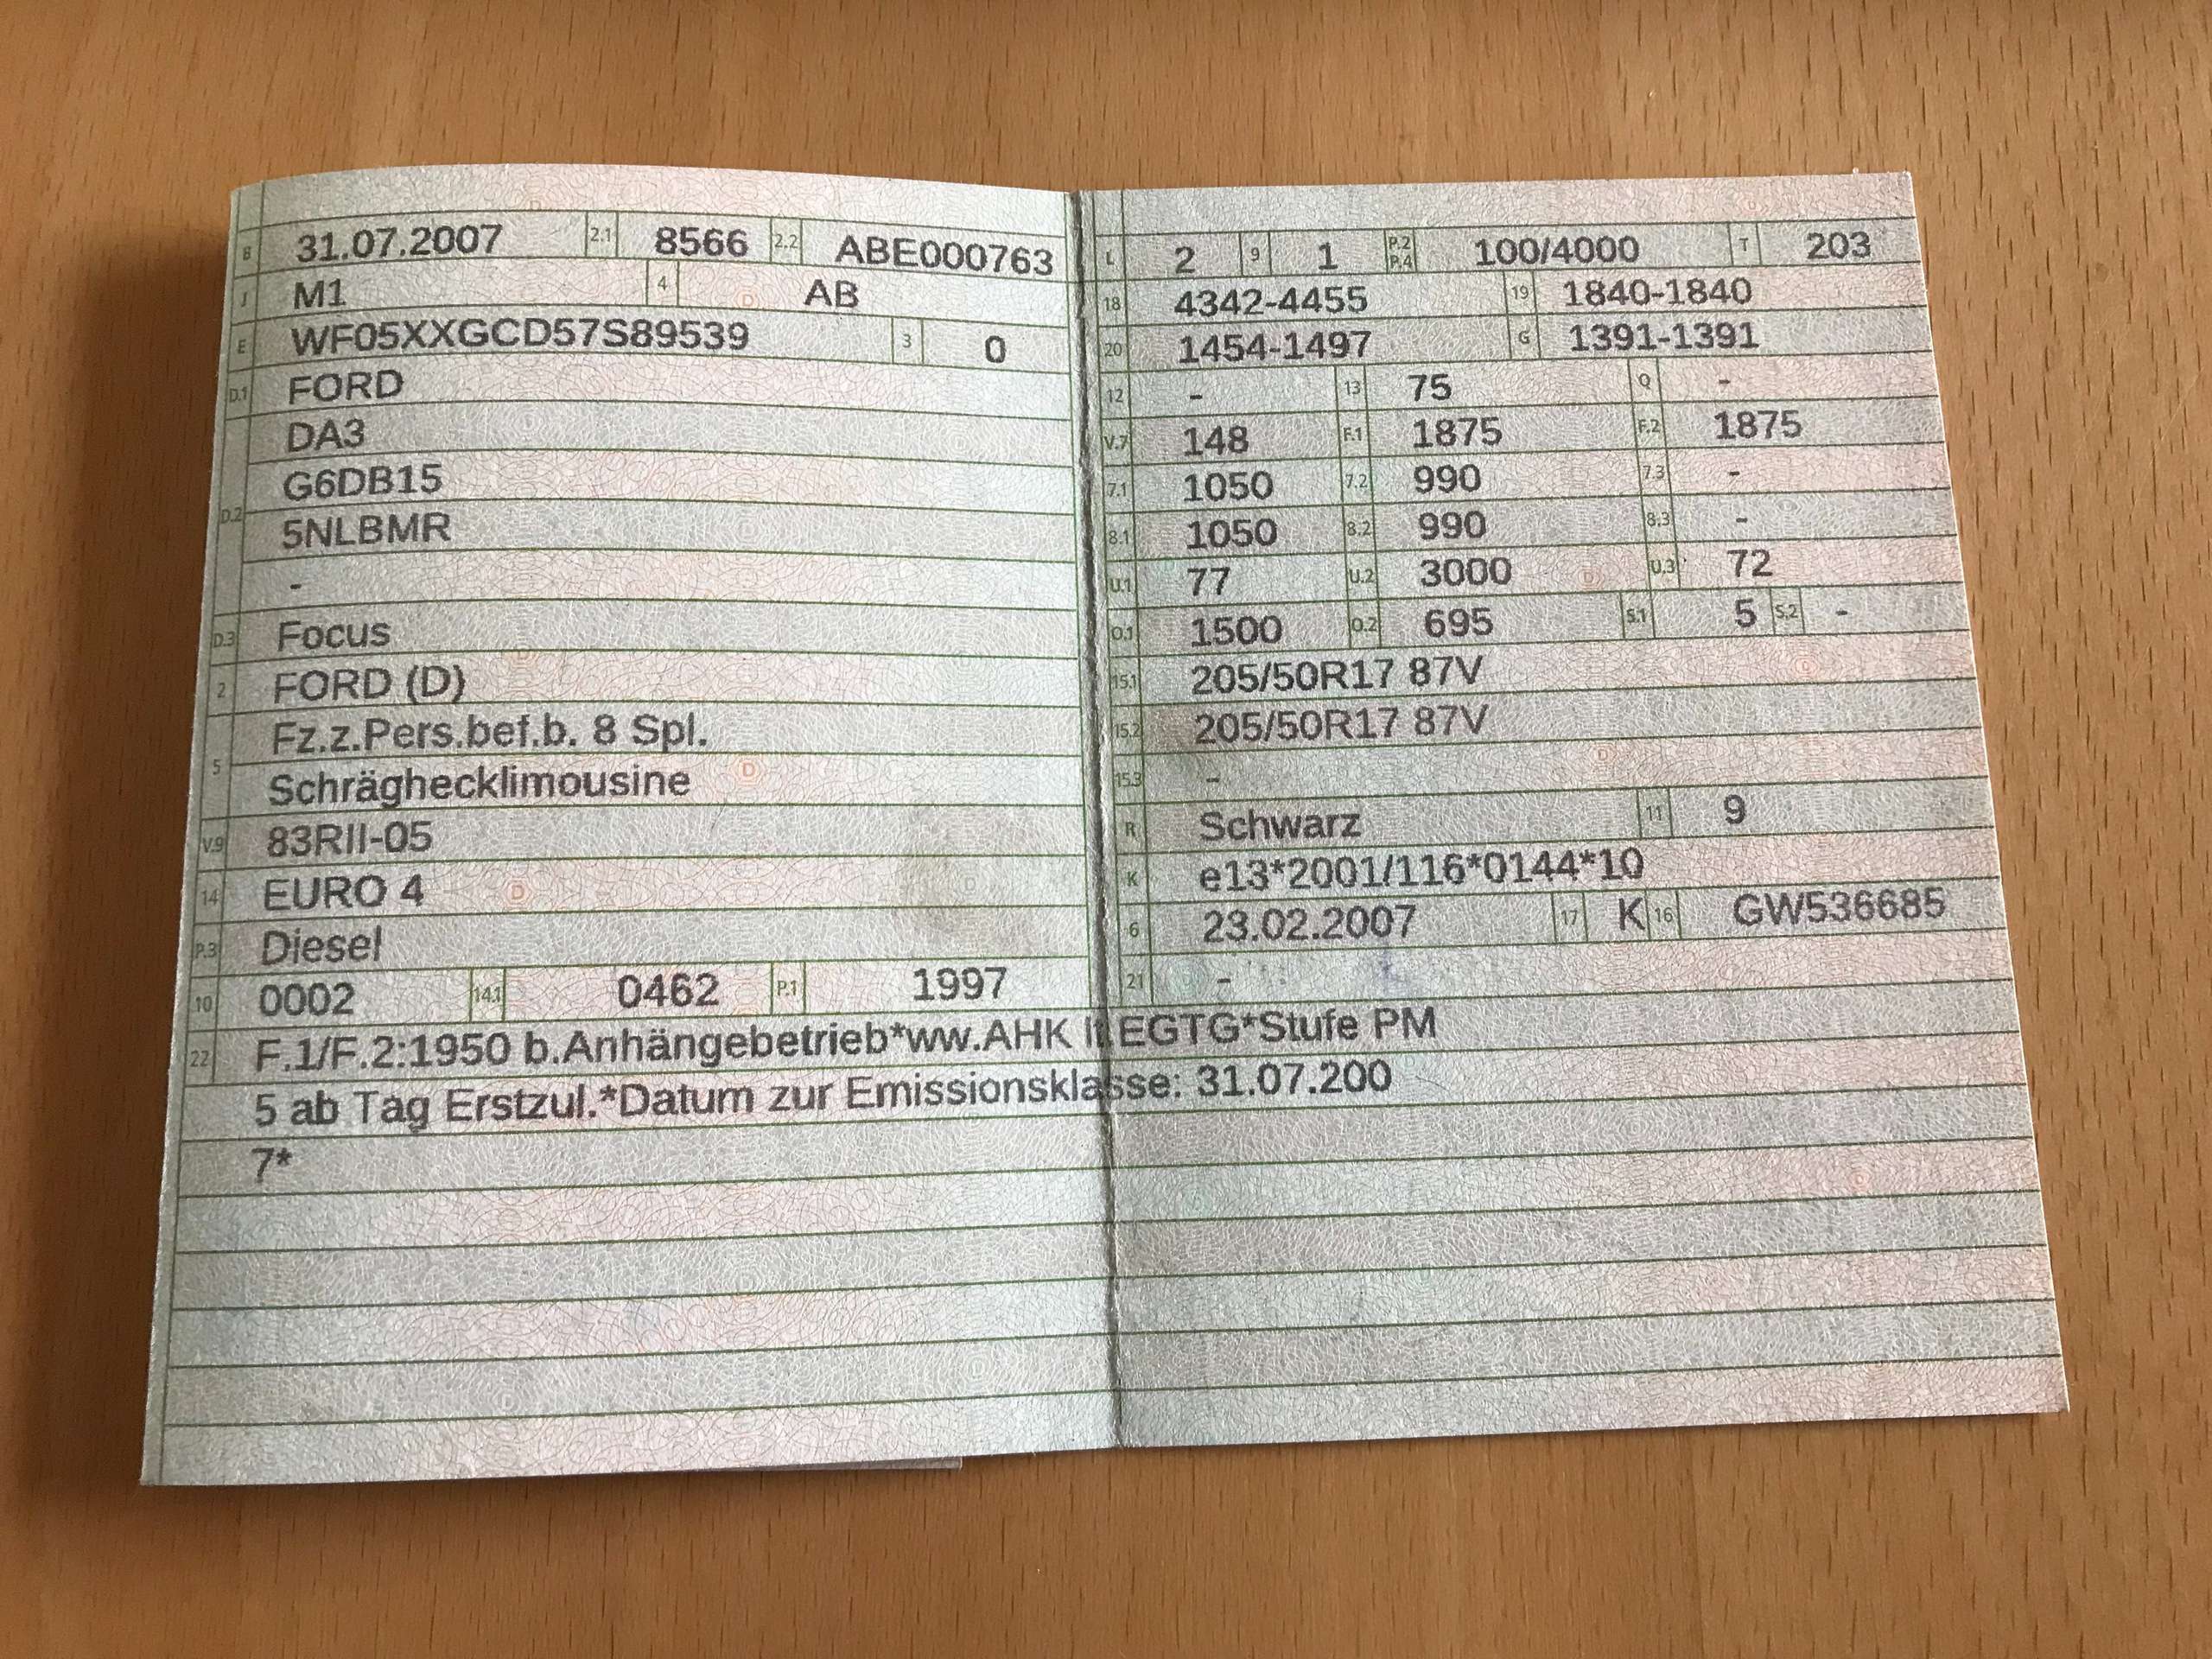 B 31.07.2007 2.1 8566 2.2 ABE000763
J M1 4 AB
E WF05XXGCD57S89539 3 0
D.1 FORD
DA3
G6DB15
D.2
5NLBMR
-
D.3 Focus
2 FORD (D)
Fz.z.Pers.bef.b. 8 Spl.
5
Schräghecklimousine
V.9 83RII-05
14 EURO 4
P.3 Diesel
10 0002 14.1 0462 P.1 1997
L 2 9 1 P.2 P.4 100/4000 T 203
18 4342-4455 19 1840-1840
20 1454-1497 G 1391-1391
12 - 13 75 Q -
V.7 148 F.1 1875 F.2 1875
7.1 1050 7.2 990 7.3 -
8.1 1050 8.2 990 8.3 -
U.1 77 U.2 3000 U.3 72
O.1 1500 O.2 695 S.1 5 S.2 -
15.1 205/50R17 87V
15.2 205/50R17 87V
15.3 -
R Schwarz 11 9
K e13*2001/116*0144*10
6 23.02.2007 17 K 16 GW536685
21 -
22 F.1/F.2:1950 b.Anhängebetrieb*ww.AHK lt.EGTG*Stufe PM
5 ab Tag Erstzul.*Datum zur Emissionsklasse: 31.07.200
7*